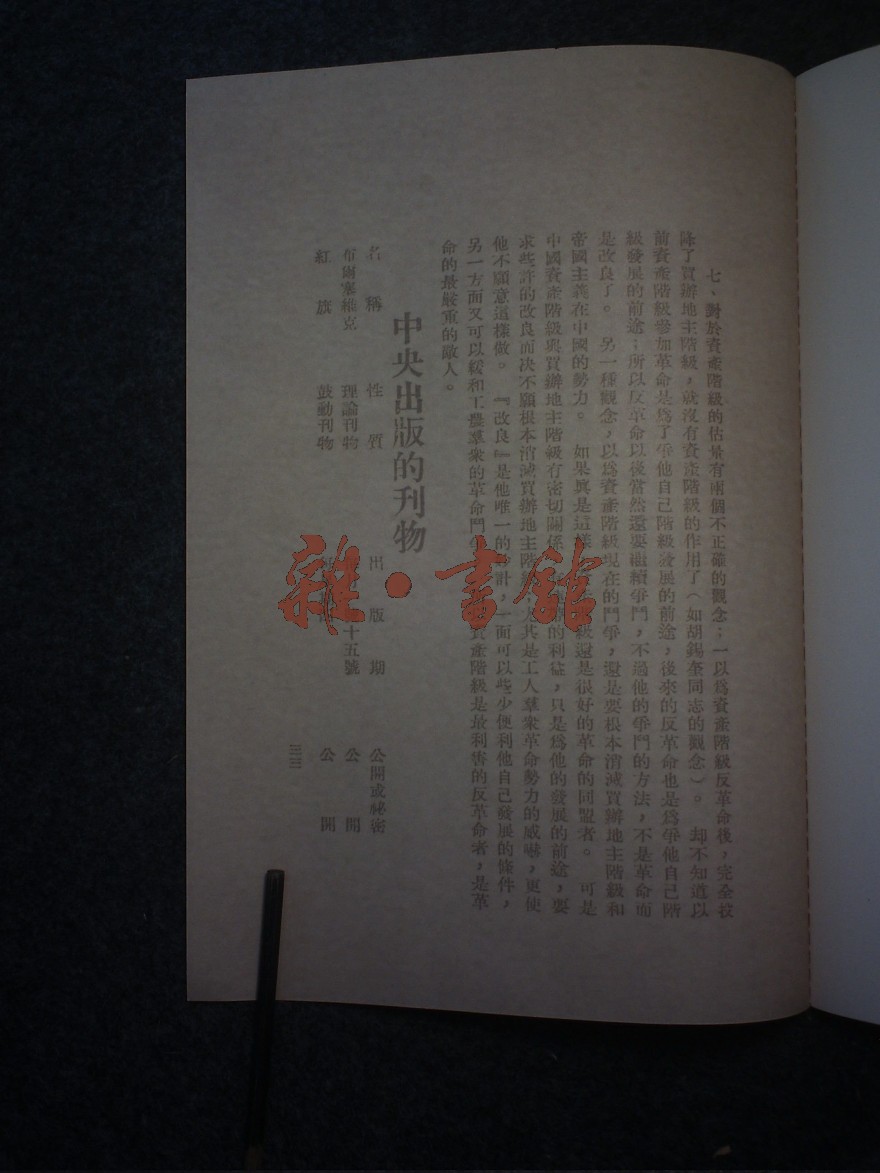 七、對於資產階級的估量有兩個不正確的觀念;一以爲資產階級反革命後,完全投
除了買辦地主階級,就沒有資產階級的作用了(如胡錫奎同志的觀念)。 却不知道以
前資產階級參加革命是爲了爭他自己階級發展的前途,後來的反革命也是爲爭他自己階
級發展的前途;所以反革命以後當然還要繼續爭鬥,不過他的爭鬥的方法,不是革命而
是改良了。 另一種觀念,以爲資產階級現在的鬥爭,還是要根本消滅買辦地主階級和
帝國主義在中國的勢力。 如果眞是這樣 級還是很好的革命的同盟者。 可是
中國資產階級與買辦地主階級有密切關係 的利益,只是爲他的發展的前途,要
求些許的改良而决不願根本消滅買辦地主階級,尤其是工人羣衆革命勢力的威嚇,更使
他不願意這樣做。 『改良』是他唯一的 計,一面可以些少便利他自己發展的條件,
另一方面又可以緩和工農羣衆的革命鬥爭 資產階級是最利害的反革命者,是革
命的最嚴重的敵人。
中央出版的刊物
名稱 性質 出版期 公開或祕密
布爾塞維克 理論刊物 十五號 公開
紅旗 鼓動刊物 公開
三三
雜·書館